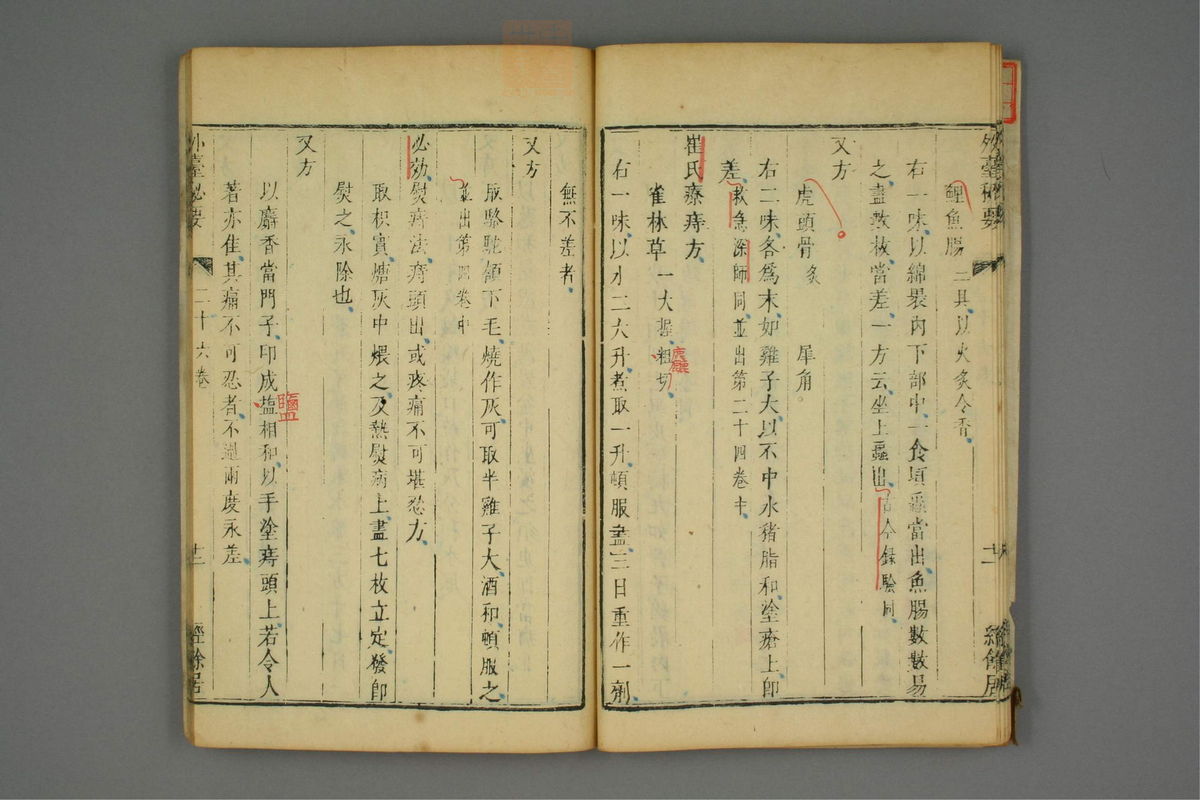 外臺秘要
經餘居
鯉魚腸三具以火炙令香
右一味以綿裹內下部中一食頃蟲當出魚腸數數易
之盡數枚當差一方云坐上蟲出古今錄驗同
又方
虎頭骨炙 犀角
右二味各為末如雞子大以不中水豬脂和塗瘡上即
差救急深師同並出第二十四卷中
崔氏療痔方
雀林草一大握粗切
右一味以水二大升煮取一升頓服盡三日重作一劑
無不差者
又方
取駱駝頷下毛燒作灰可取半雞子大酒和頓服之
並出第四卷中
必効熨痔法痔頭出或疼痛不可堪忍方
取枳實煻灰中煨之及熱熨病上盡七枚立定發即
熨之永除也
又方
以麝香當門子印成塩相和以手塗痔頭上若令人
鹽
著亦佳其痛不可忍者不過兩度永差
外臺秘要
二十六卷
十二
經餘居